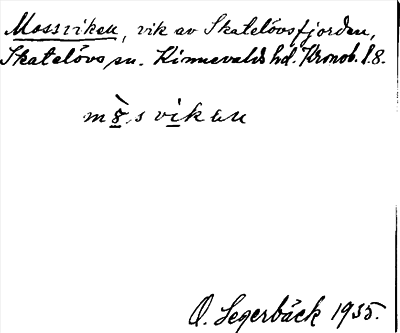 Mossviken, vik av Skatelövsfjorden,
Skatelövs sn. Kinnevalds hd. Kronob. l.
vikan
O. Segerbäck 1935.